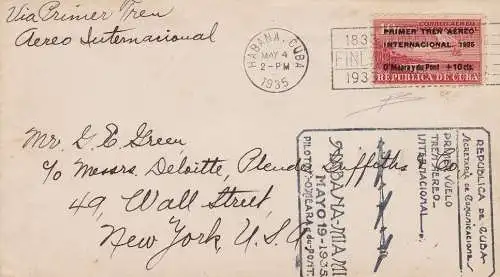 Via Primer Tren
Aereo Internacional
HABANA, CUBA
MAY 4
2-PM
1935
183
FINL
193
CORREO AEREO
PRIMER TREN AEREO
INTERNACIONAL. 1935
O'Meara y du Pont +10 cts.
REPUBLICA DE CUBA
Mr. G. E. Green
c/o Messrs. Deloitte, Plender, Griffiths & Co.
49, Wall Street,
New York, U.S.A
REPUBLICA DE CUBA
SECRETARIA DE COMUNICACIONES
PRIMER VUELO
TREN AEREO
INTERNACIONAL
HABANA-MIAMI
MAYO 19-1935
PILOTOS: O'MEARA & du PONT.